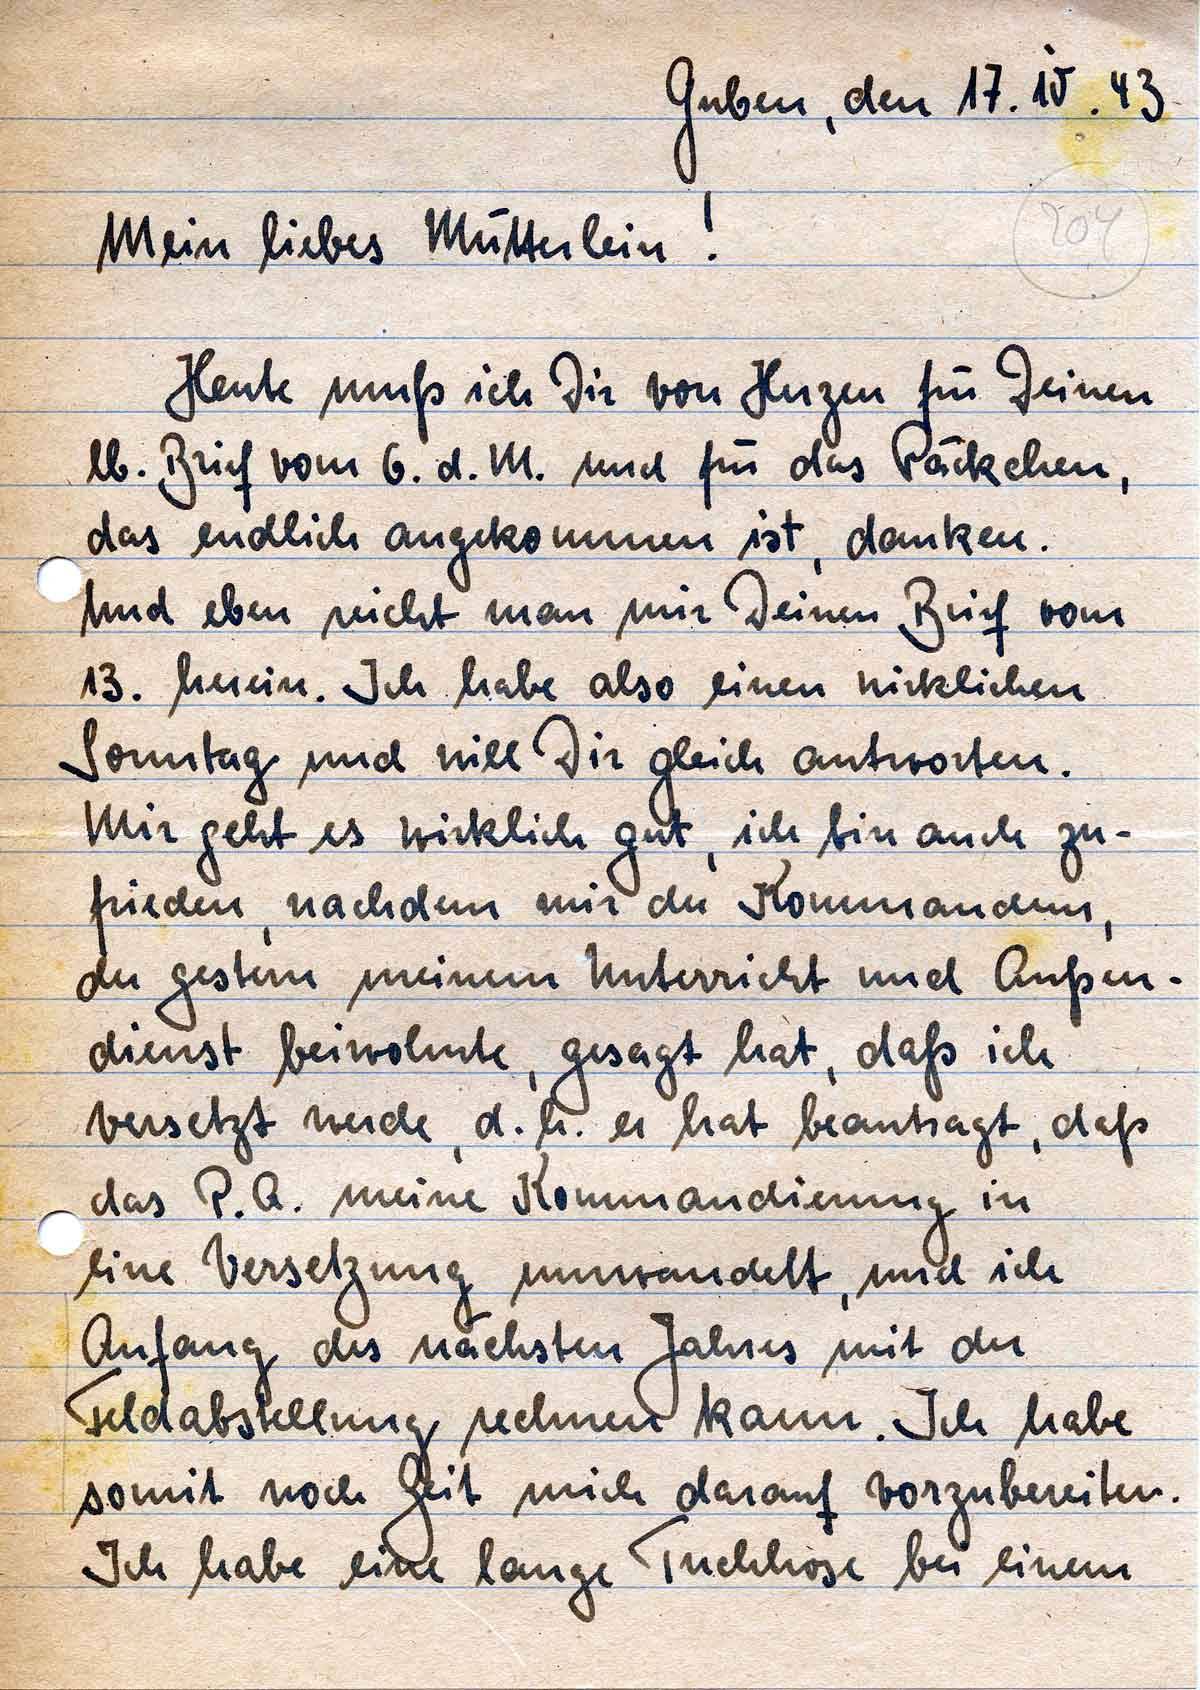 Guben, den 17. IV. 43
204
Mein liebes Mütterlein!
Heute muß ich Dir von Herzen für Deinen
lb. Brief vom 6. d. M. und für das Päckchen,
das endlich angekommen ist, danken.
Und eben reicht man mir Deinen Brief vom
13. herein. Ich habe also einen wirklichen
Sonntag und will Dir gleich antworten.
Mir geht es wirklich gut, ich bin auch zu-
frieden, nachdem mir der Kommandeur,
der gestern meinem Unterricht und Außen-
dienst beiwohnte, gesagt hat, daß ich
versetzt werde, d. h. er hat beantragt, daß
das P. A. meine Kommandierung in
eine Versetzung umwandelt, und ich
Anfang des nächsten Jahres mit der
Feldabstellung rechnen kann. Ich habe
somit noch Zeit mich darauf vorzubereiten.
Ich habe eine lange Tuchhose bei einem